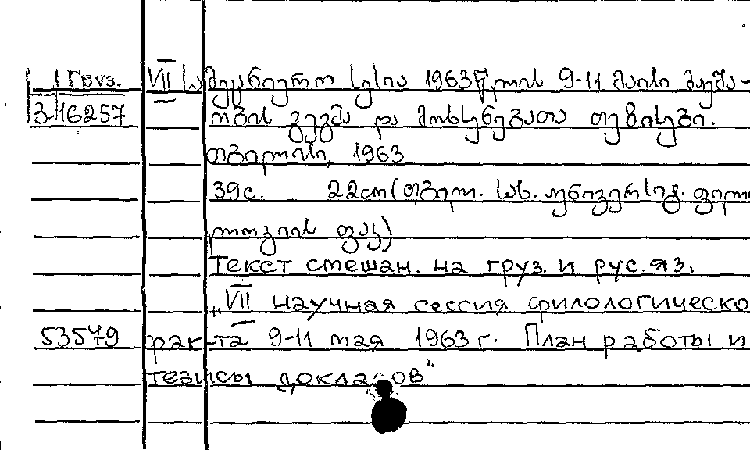 Груз. VII სამეცნიერო სესია 1963 წლის 9-11 მაისი მუშა-
3-16257 ობის გეგმა და მოხსენებათა თეზისები.
თბილისი, 1963
39с. 22см (თბილ. სახ. უნივერსიტ. ფილო
ლოგიის ფაკ)
Текст смешан. на груз. и рус. яз.
„VII научная сессия филологическо
53579 фак-та 9-11 мая 1963 г. План работы и
тезисы докладов"